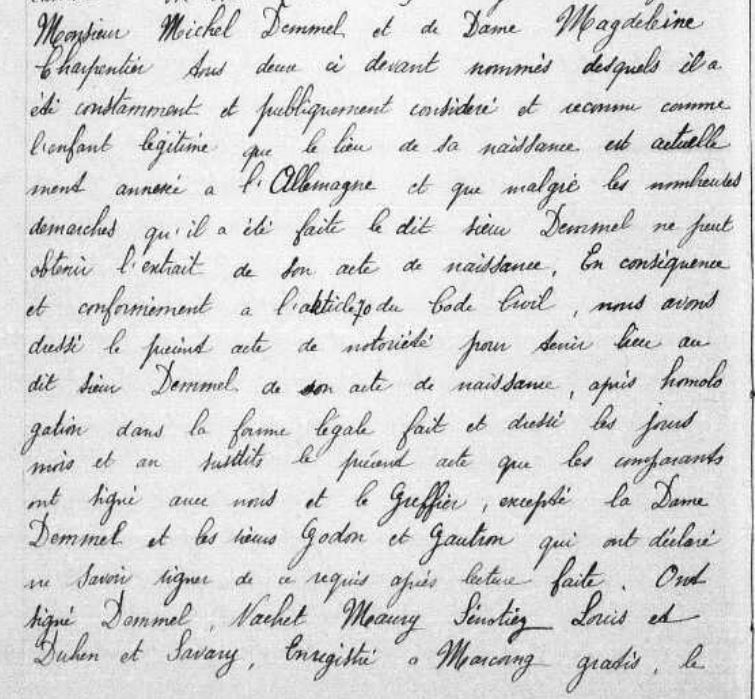 Monsieur Michel Demmel et de Dame Magdeleine
Charpentier tous deux ci devant nommés desquels il a
été constamment et publiquement consideré et reconnu comme
l'enfant légitime que le lieu de sa naissance est actuelle
ment annexé a l'Allemagne et que malgré les nombreuses
demarches qu'il a été faite le dit sieur Demmel ne peut
obtenir l'extrait de son acte de naissance. En conséquence
et conformément a l'article 70 du Code Civil, nous avons
dressé le présent acte de notoriété pour tenir lieu au
dit sieur Demmel de son acte de naissance, après homolo
gation dans la forme légale fait et dressé les jours
mois et an susdits le présent acte que les comparants
ont signé avec nous et le Greffier, excepté la Dame
Demmel et les sieurs Godon et Gautron qui ont déclaré
ne savoir signer de ce requis après lecture faite. Ont
signé Demmel, Vachet Maury Louis et
Duhen et Savary, Enregistré a Marcoing gratis, le